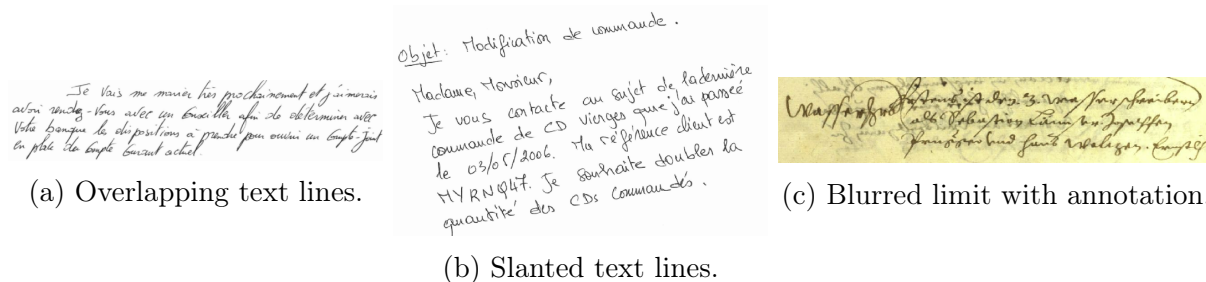 Je Vais me marier très prochainement et j'aimerais
avoir rendez-Vous avec un Conseiller afin de determiner avec
Votre banque les dispositions à prendre pour ouvrir un Compte-Joint
en place du Compte Courant actuel.
(a) Overlapping text lines.
Objet: Modification de commande.
Madame, Monsieur,
Je vous contacte au sujet de la dernière
commande de CD vierges que j'ai passée
le 03/05/2006. Ma référence client est
MYRNQ47. Je souhaite doubler la
quantité des CDs commandés.
(b) Slanted text lines.
den 3. Wasserschreibern
als Sebastian
und hans
(c) Blurred limit with annotation.